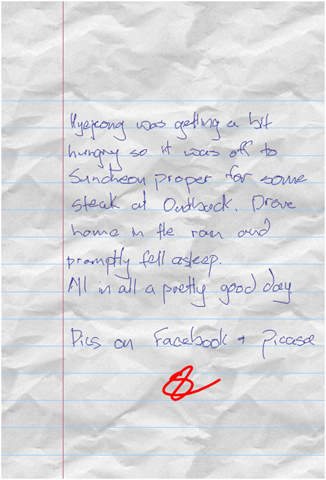 Hyejeong was getting a bit
hungry so it was off to
Suncheon proper for some
steak at Outback. Drove
home in the rain and
promptly fell asleep.
All in all a pretty good day
Pics on Facebook + Picasa